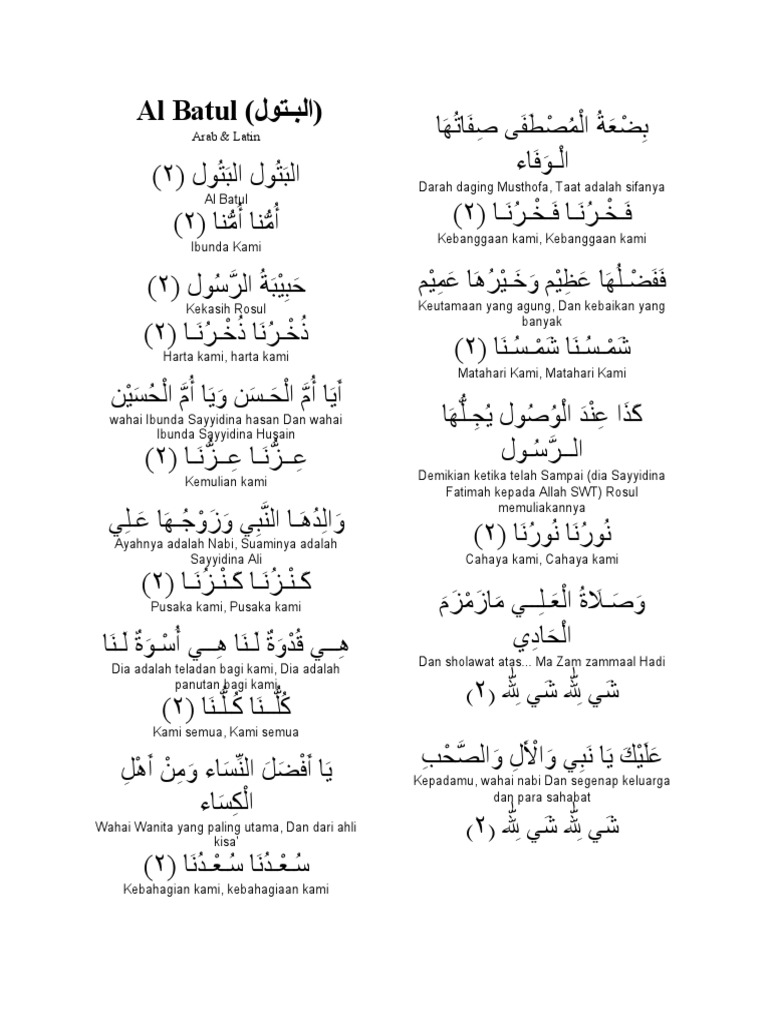 Al Batul (البـتـول)
Arab & Latin
البَتُول البَتُول (٢)
Al Batul
أُمُّنا أُمُّنا (٢)
Ibunda Kami
حَبِيْبَةُ الرَّسُول (٢)
Kekasih Rosul
ذُخْـرُنَا ذُخْـرُنَـا (٢)
Harta kami, harta kami
أَيَا أُمَّ الْحَـسَن وَيَا أُمَّ الْحُسَيْن
wahai Ibunda Sayyidina hasan Dan wahai
Ibunda Sayyidina Husain
عِــزُّنَـا عِــزُّنَـا (٢)
Kemulian kami
وَالِدُهَـا النَّبِي وَزَوْجُـهَا عَـلِي
Ayahnya adalah Nabi, Suaminya adalah
Sayyidina Ali
كَـنْـزُنَـا كَـنْـزُنَـا (٢)
Pusaka kami, Pusaka kami
هِــي قُدْوَةٌ لَـنَا هِــي أُسْـوَةٌ لَـنَا
Dia adalah teladan bagi kami, Dia adalah
panutan bagi kami
كُلُّــنَا كُـلُّـنَا (٢)
Kami semua, Kami semua
يَا أَفْضَلَ النِّسَاء وَمِنْ أَهْلِ
الْكِسَاء
Wahai Wanita yang paling utama, Dan dari ahli
kisa'
سُـعْـدُنَا سُـعْـدُنَا (٢)
Kebahagian kami, kebahagiaan kami
بِضْعَةُ الْمُصْطَفَى صِفَاتُهَا
الْـوَفَاء
Darah daging Musthofa, Taat adalah sifanya
فَـخْـرُنَـا فَـخْـرُنَـا (٢)
Kebanggaan kami, Kebanggaan kami
فَفَضْـلُهَا عَظِيْم وَخَـيْرُهَا عَمِيْم
Keutamaan yang agung, Dan kebaikan yang
banyak
شَمْـسُـنَا شَمْـسُـنَا (٢)
Matahari Kami, Matahari Kami
كَذَا عِنْدَ الْوُصُول يُجِـلُّهَا
الــرَّسُـول
Demikian ketika telah Sampai (dia Sayyidina
Fatimah kepada Allah SWT) Rosul
memuliakannya
نُورُنَا نُورُنَا (٢)
Cahaya kami, Cahaya kami
وَصَـلَاةُ الْعَـلِــي مَازَمْزَمَ
الْحَادِي
Dan sholawat atas... Ma Zam zammaal Hadi
شَي لِلّٰه شَي لِلّٰه (٢)
عَلَيْكَ يَا نَبِي وَالْأَلِ وَالصَّحْبِ
Kepadamu, wahai nabi Dan segenap keluarga
dan para sahabat
شَي لِلّٰه شَي لِلّٰه (٢)